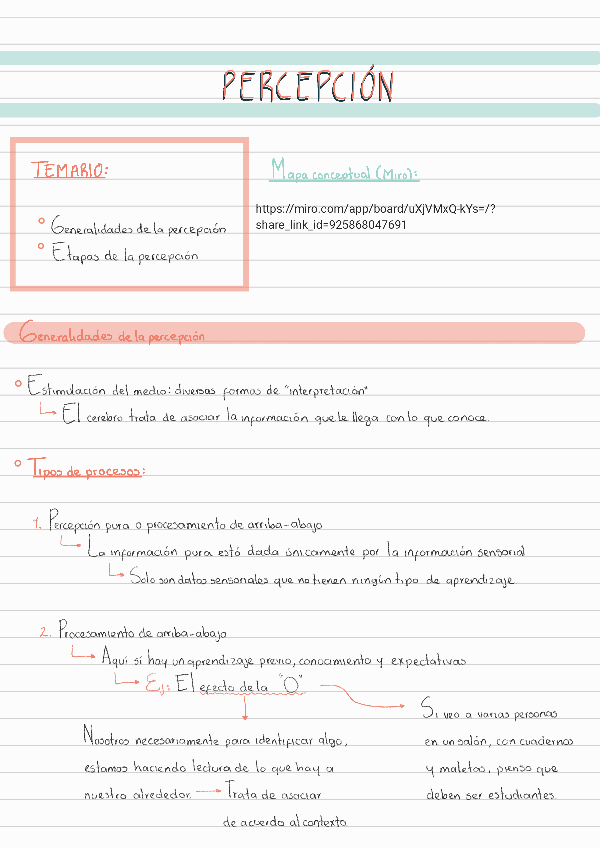 PERCEPCIÓN
TEMARIO:
Generalidades de la percepción
Etapas de la percepción
Mapa conceptual (Miro):
https://miro.com/app/board/uXjVMxQ-kYs=/?
share_link_id=925868047691
Generalidades de la percepción
Estimulación del medio: diversas formas de "interpretación"
El cerebro trata de asociar la información que le llega con lo que conoce.
Tipos de procesos:
1. Percepción pura o procesamiento de arriba-abajo
La información pura está dada únicamente por la información sensorial
Solo son datos sensoriales que no tienen ningún tipo de aprendizaje
2. Procesamiento de arriba-abajo
Aquí sí hay un aprendizaje previo, conocimiento y expectativas
Ej: El efecto de la "O"
Nosotros necesariamente para identificar algo,
estamos haciendo lectura de lo que hay a
nuestro alrededor. Trata de asociar
de acuerdo al contexto
Si veo a varias personas
en un salón, con cuadernos
y maletas, pienso que
deben ser estudiantes.